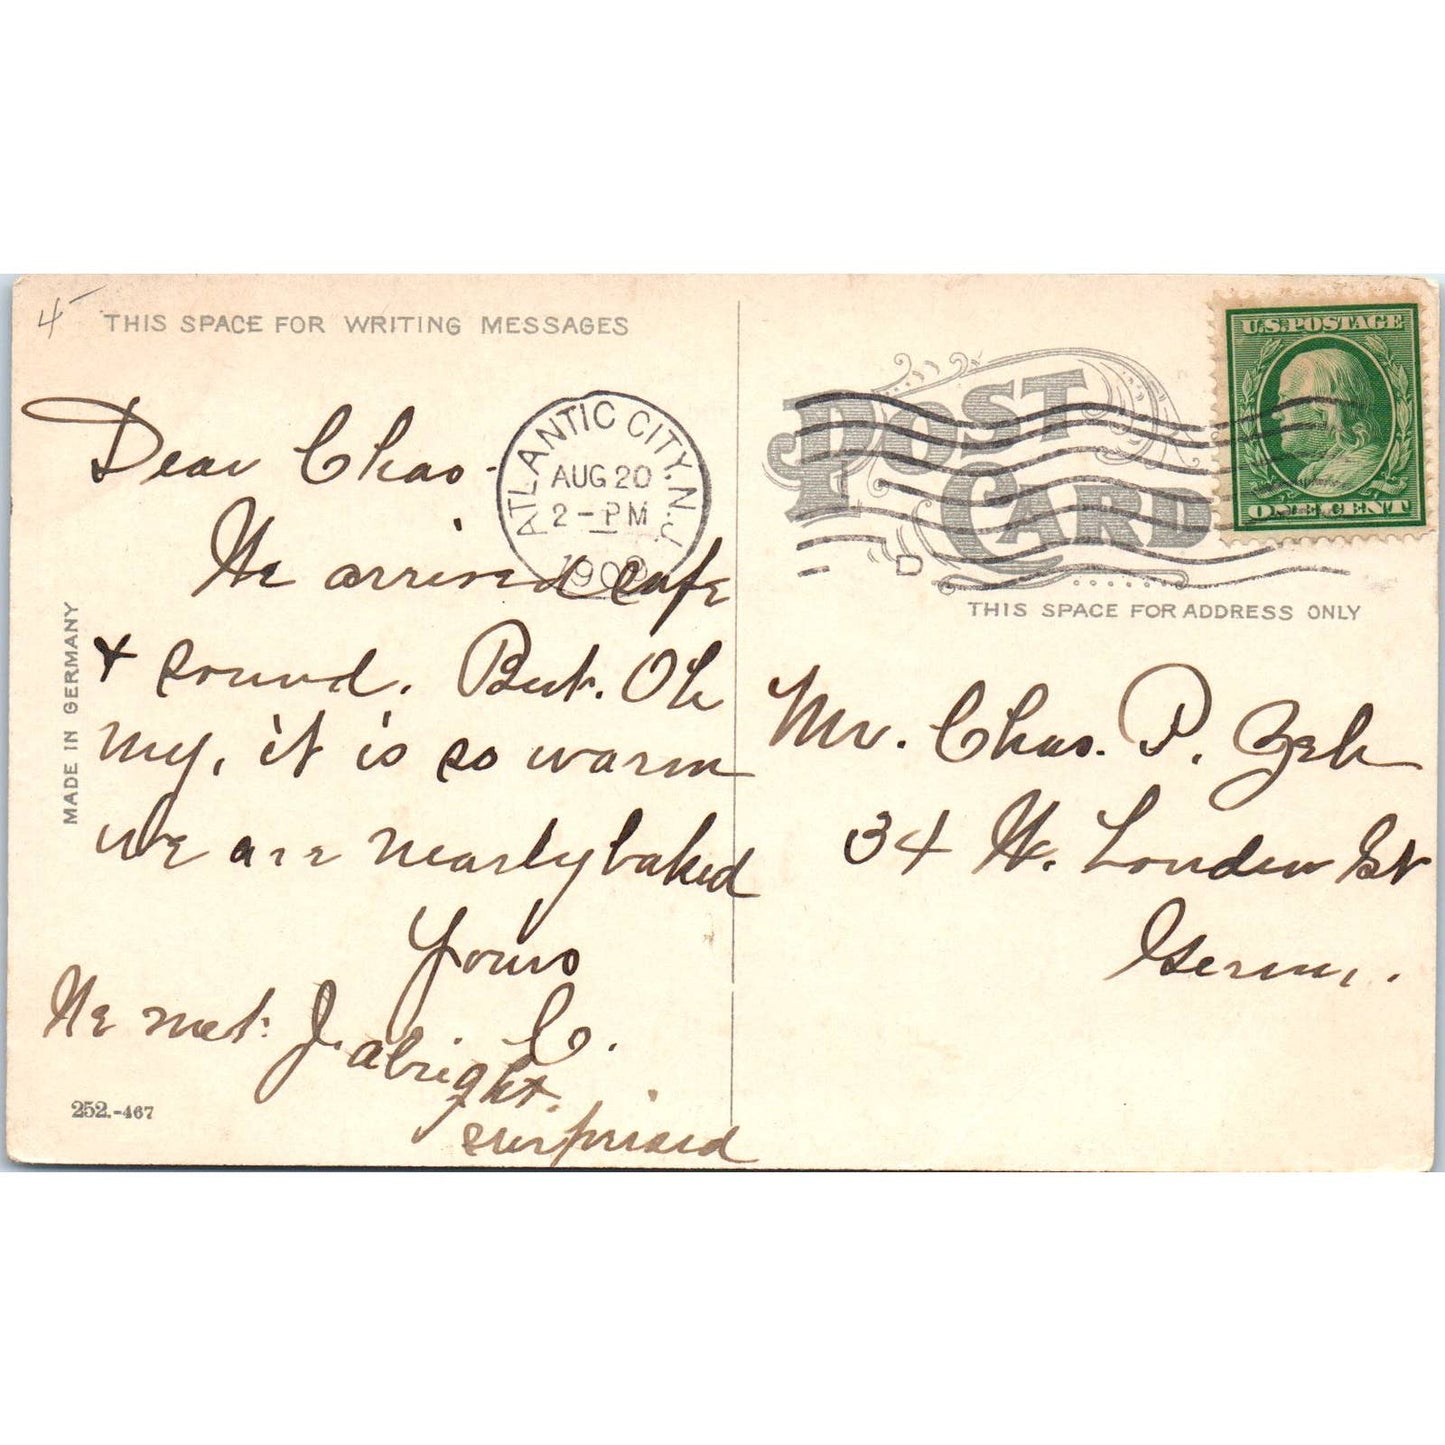 4
THIS SPACE FOR WRITING MESSAGES
Dear Chas -
We arrived safe
+ sound. But. Oh
my, it is so warm
we are nearly baked
Yours
C.
We met J. Albright.
surprised
MADE IN GERMANY
252.-467
ATLANTIC CITY, N.J.
AUG 20
2 - PM
1909
POST CARD
D
U.S. POSTAGE
ONE CENT
THIS SPACE FOR ADDRESS ONLY
Mr. Chas. P. Zeh
34 W.
St